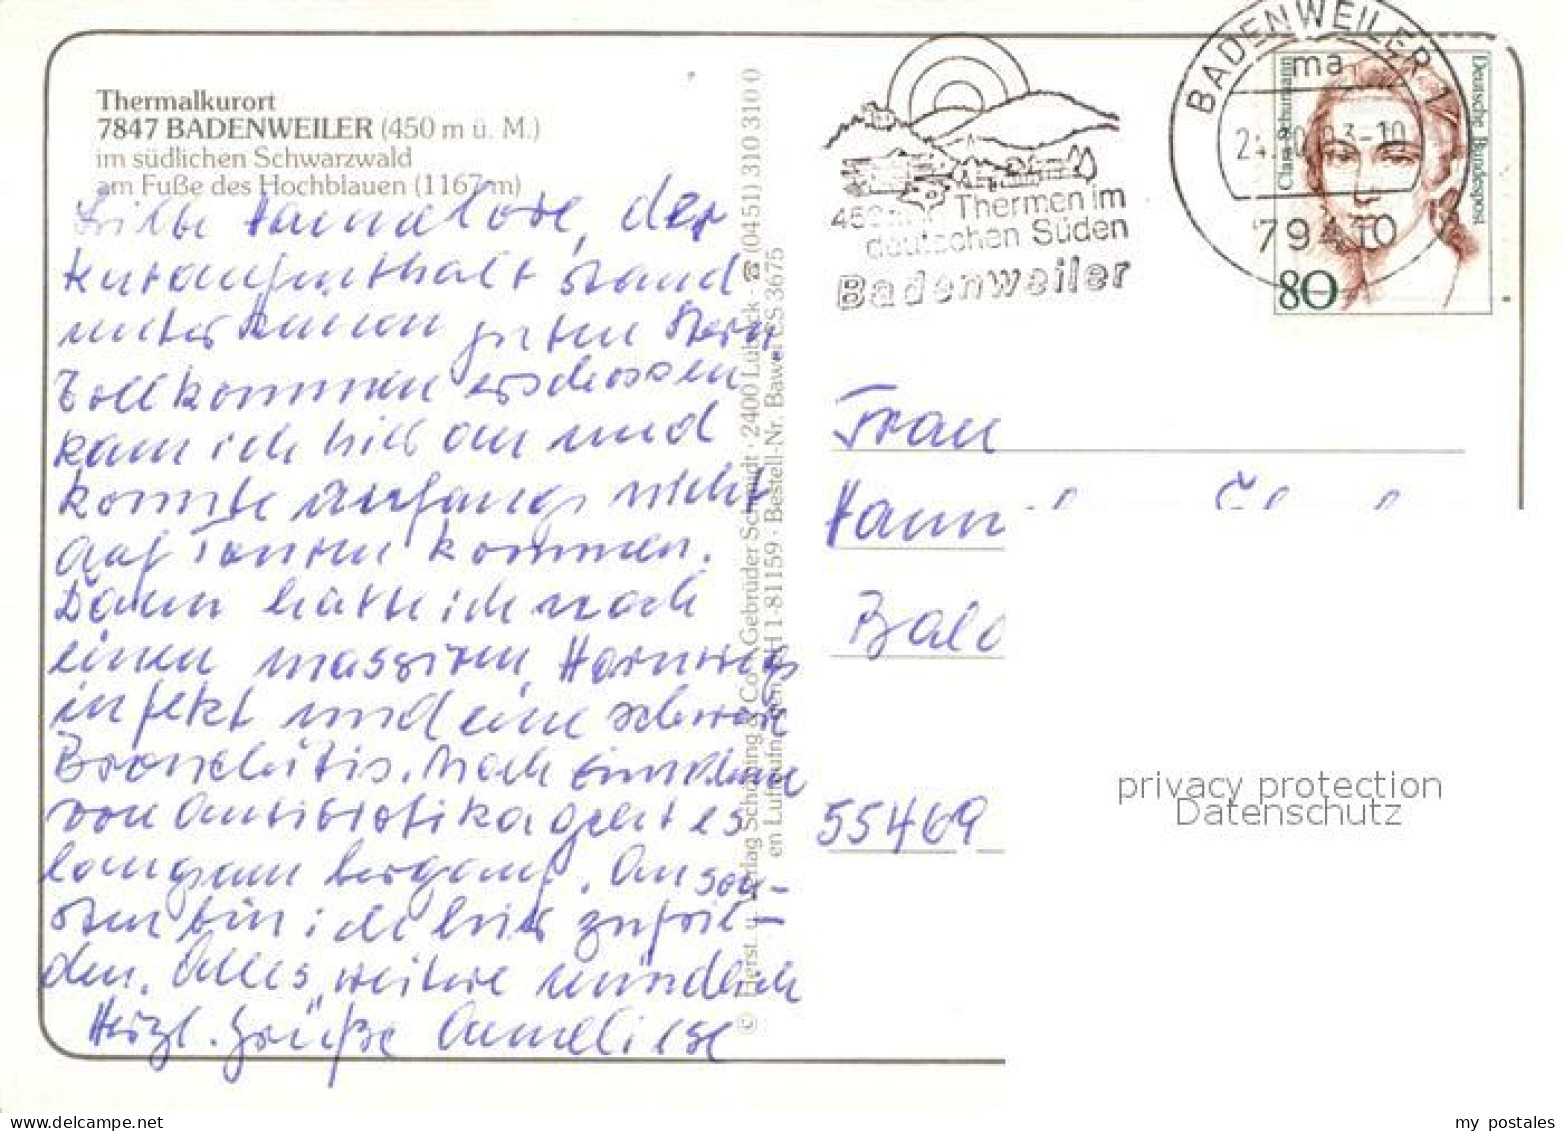 Thermalkurort
7847 BADENWEILER (450 m ü. M.)
im südlichen Schwarzwald
am Fuße des Hochblauen (1167 m)
Liebe Hannelore, der
Kuraufenthalt stand
unter keinem guten Stern.
Vollkommen erschossen
kam ich hier an und
konnte anfangs nicht
auf Touren kommen.
Dann hatte ich noch
einen massiven Harnwegs
infekt und eine schwere
Bronchitis. Nach Einnahme
von Antibiotika geht es
langsam bergauf. Anson-
sten bin ich hier zufrie-
den. Alles weitere mündlich
Herzl. Grüße Anneliese
© Herst. u. Verlag Schöning & Co + Gebrüder Schmidt · 2400 Lübeck · ☎ (0451) 310 310 0
en Luftaufn. H 1-81159 · Bestell-Nr. Bawei CS 3675
Thermen im
deutschen Süden
Badenweiler
BADENWEILER 1
ma
79410
Clara Schumann
Deutsche Bundespost
80
Frau
Hann
Bald
55469
privacy protection
Datenschutz
my postales